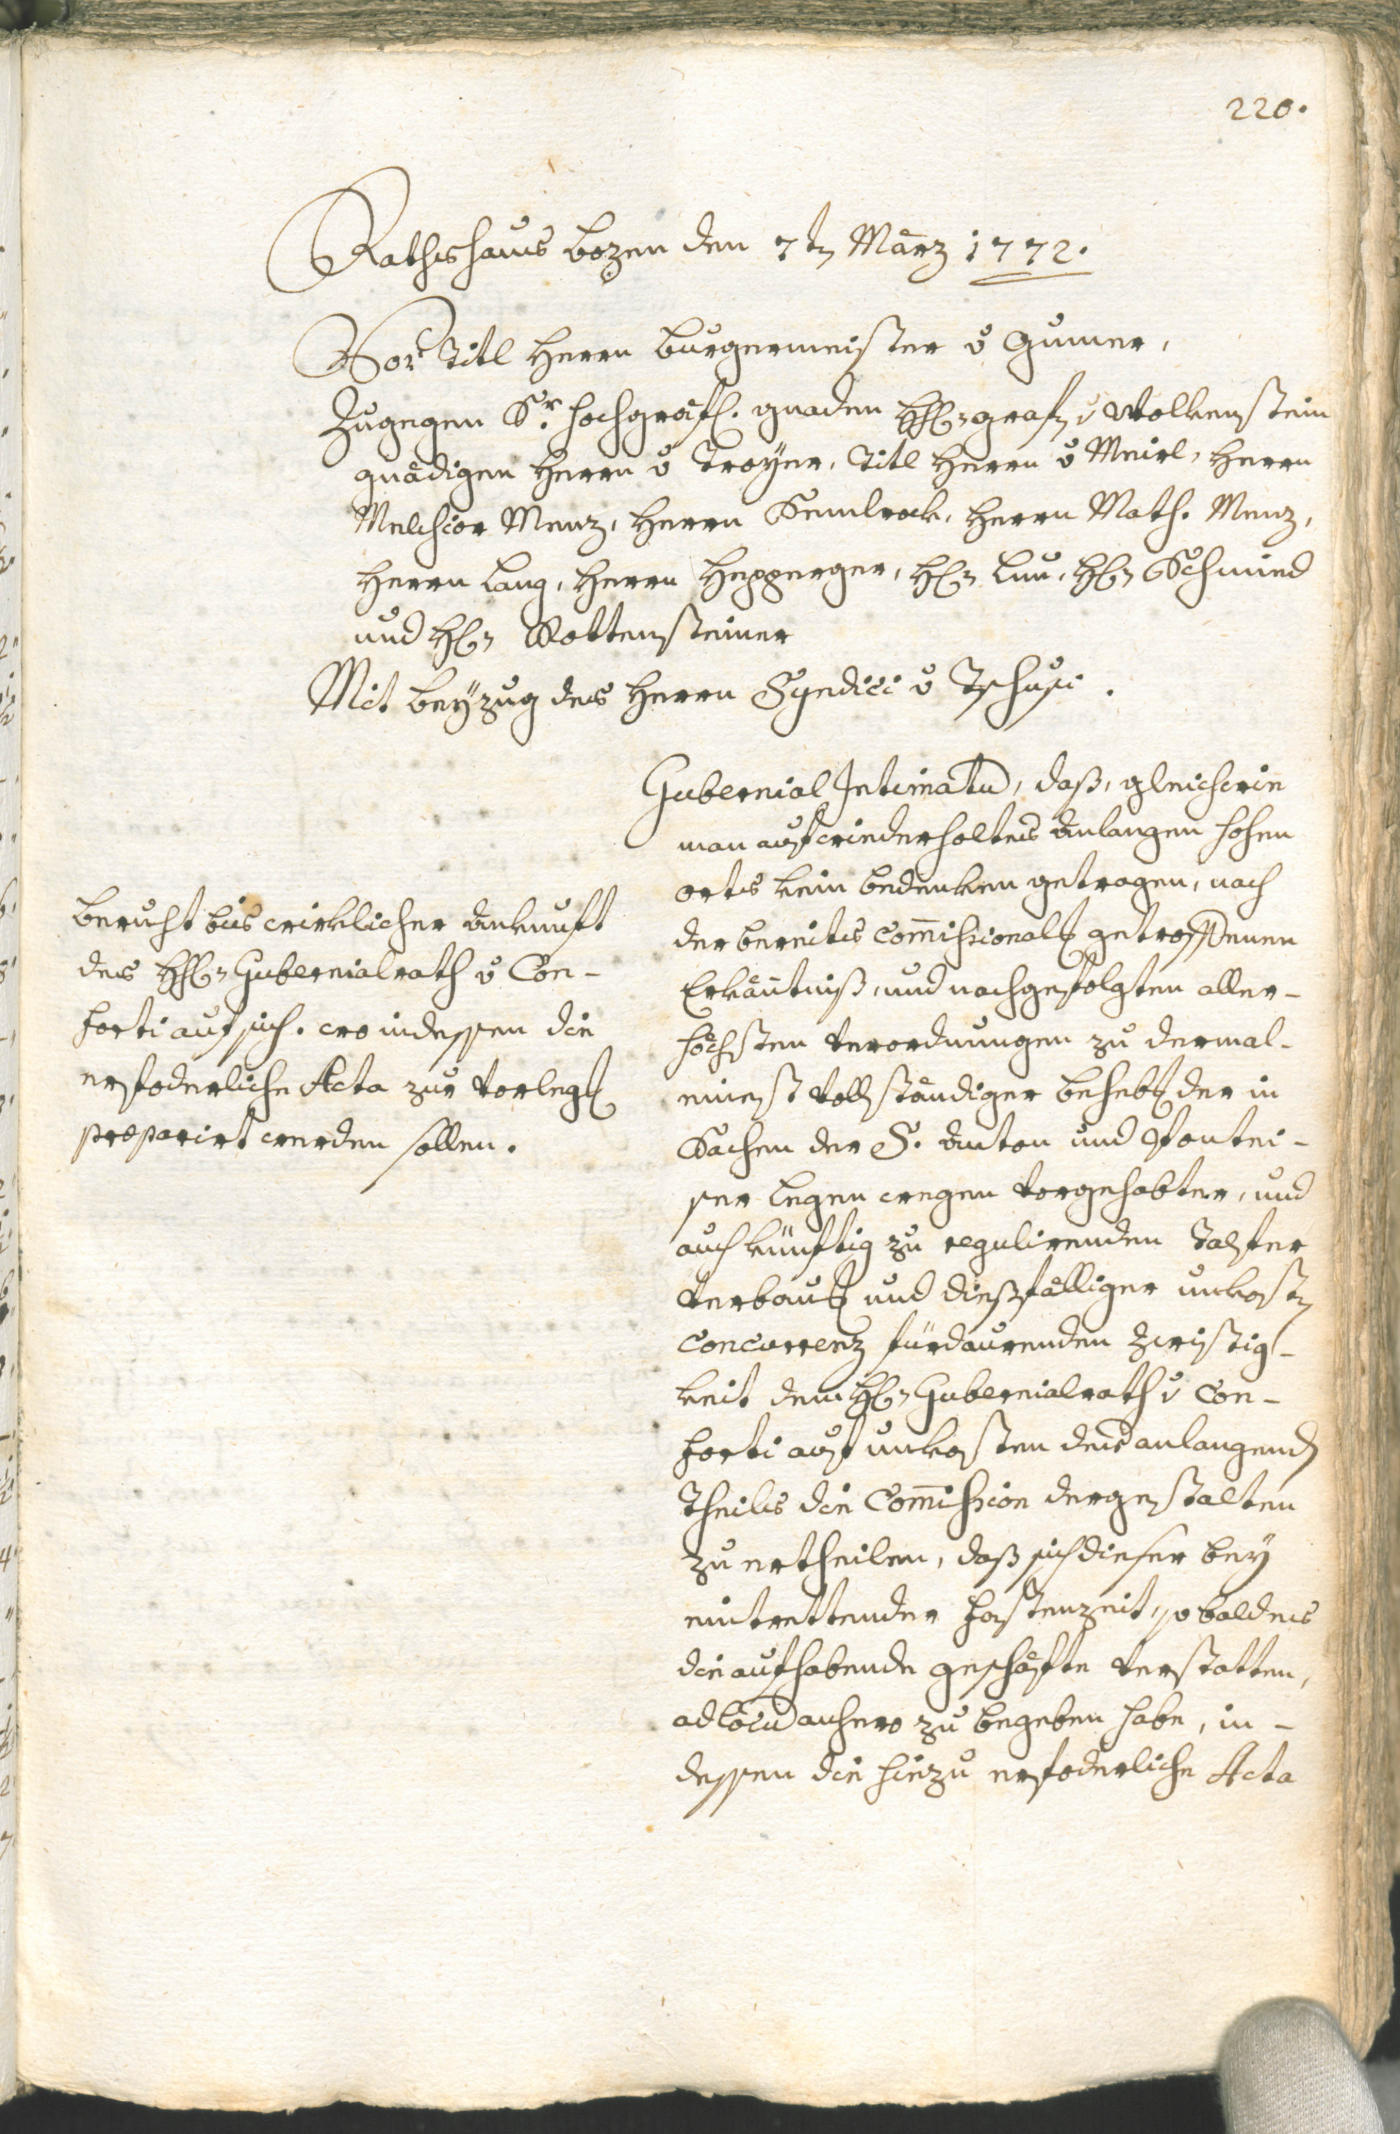 220.
Rathshaus Bozen den 7tn März 1772.
Vor Titl Herrn Burgermeister v Gumer,
Zugegen Sr. hochgräfl. gnaden HH. grafn v Wolkenstein
gnädigen Herrn v Troyer, Titl Herrn v Meirl, Herrn
Melchior Menz, Herrn Semlrock, Herrn Math. Menz,
Herrn Lang, Herrn Hepperger, H. Luu, H. Schmied
und H. Rottensteiner
Mit beyzug des Herrn Syndici v Tschusi.
Gubernial Intimatu, daß, gleichwie
man auf wiederholtes anlangen hohen
orts kein bedenken getragen, nach
der bereits Commissionalr getroffenen
Erkäntniß, und nachgefolgten aller-
höchsten Verordnungen zu dermal-
einest vollständiger behebg der in
Sachen der S. Anton und Fontei-
ser Legen wegen vorgehabter, und
auch künftig zu regulirenden Talfer
Verbaug und dießfälliger unkostn
Concurrenz fürdaurenden zwistig-
keit dem H. Gubernialrath v Con-
forti auf unkosten des anlangendn
Theils die Commission dergestalten
zu ertheilen, daß sich dieser bey
eintrettender fastenzeit, so bald es
die aufhabende geschäfte verstatten,
ad locu anhero zu begeben habe, in-
dessen die hiezu erfoderliche Acta
beruht bis wirklicher ankunft
des HH. Gubernialrath v Con-
forti auf sich. wo indessen die
erfoderliche Acta zur Vorlegg
præparirt werden sollen.